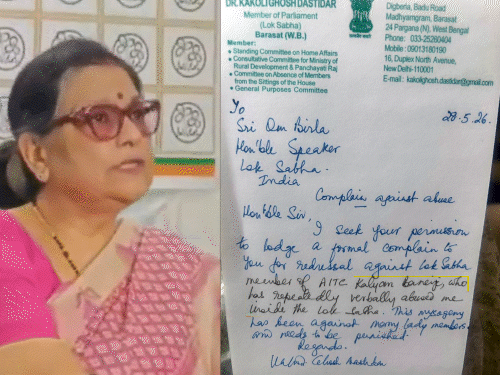 DR. KAKOLI GHOSH DASTIDAR
Member of Parliament
(Lok Sabha)
Barasat (W.B.)
Member:
• Standing Committee on Home Affairs
• Consultative Committee for Ministry of
Rural Development & Panchayati Raj
• Committee on Absence of Members
from the Sittings of the House
• General Purposes Committee
Digberia, Badu Road
Madhyamgram, Barasat
24 Pargana (N), West Bengal
Phone : 033-25260404
Mobile : 09013180190
16, Duplex North Avenue,
New Delhi-110001
E-mail : kakolighosh.dastidar@gmail.com
28.5.26.
To
Sri Om Birla
Hon'ble Speaker
Lok Sabha.
India
Complain against abuse
Hon'ble Sir,
I seek your permission
to lodge a formal complain to
you for redressal against Lok Sabha
member of AITC Kalyan Banerji, who
has repeatedly verbally abused me
inside the Lok Sabha. This mysogeny
has been against many lady members
and needs to be punished.
Regards.